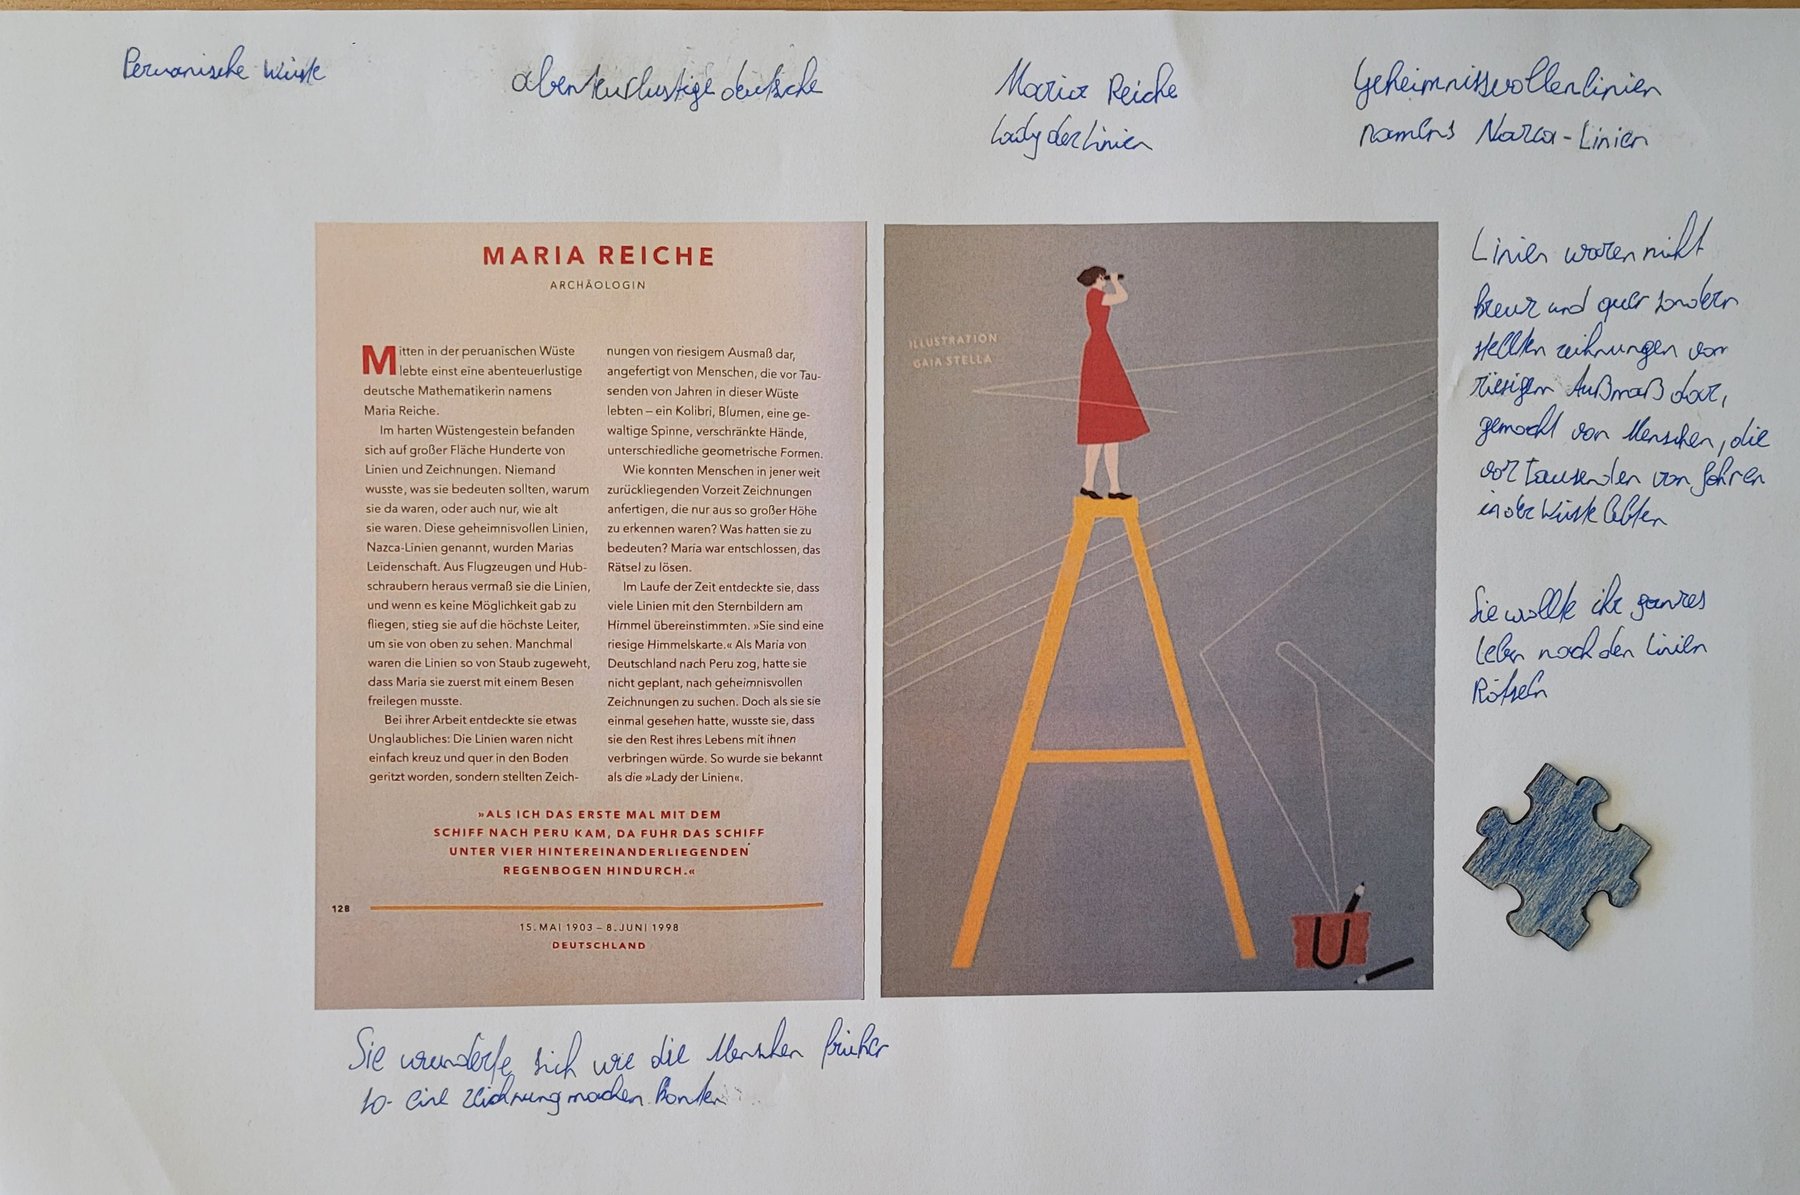 Peruanische Wüste
abenteurlustige deutsche
Maria Reiche
Lady der Linien
Geheimnissvollen linien
namens Nazca-Linien
MARIA REICHE
ARCHÄOLOGIN
Mitten in der peruanischen Wüste
lebte einst eine abenteuerlustige
deutsche Mathematikerin namens
Maria Reiche.
Im harten Wüstengestein befanden
sich auf großer Fläche Hunderte von
Linien und Zeichnungen. Niemand
wusste, was sie bedeuten sollten, warum
sie da waren, oder auch nur, wie alt
sie waren. Diese geheimnisvollen Linien,
Nazca-Linien genannt, wurden Marias
Leidenschaft. Aus Flugzeugen und Hub-
schraubern heraus vermaß sie die Linien,
und wenn es keine Möglichkeit gab zu
fliegen, stieg sie auf die höchste Leiter,
um sie von oben zu sehen. Manchmal
waren die Linien so von Staub zugeweht,
dass Maria sie zuerst mit einem Besen
freilegen musste.
Bei ihrer Arbeit entdeckte sie etwas
Unglaubliches: Die Linien waren nicht
einfach kreuz und quer in den Boden
geritzt worden, sondern stellten Zeich-
nungen von riesigem Ausmaß dar,
angefertigt von Menschen, die vor Tau-
senden von Jahren in dieser Wüste
lebten – ein Kolibri, Blumen, eine ge-
waltige Spinne, verschränkte Hände,
unterschiedliche geometrische Formen.
Wie konnten Menschen in jener weit
zurückliegenden Vorzeit Zeichnungen
anfertigen, die nur aus so großer Höhe
zu erkennen waren? Was hatten sie zu
bedeuten? Maria war entschlossen, das
Rätsel zu lösen.
Im Laufe der Zeit entdeckte sie, dass
viele Linien mit den Sternbildern am
Himmel übereinstimmten. »Sie sind eine
riesige Himmelskarte.« Als Maria von
Deutschland nach Peru zog, hatte sie
nicht geplant, nach geheimnisvollen
Zeichnungen zu suchen. Doch als sie sie
einmal gesehen hatte, wusste sie, dass
sie den Rest ihres Lebens mit ihnen
verbringen würde. So wurde sie bekannt
als die »Lady der Linien«.
»ALS ICH DAS ERSTE MAL MIT DEM
SCHIFF NACH PERU KAM, DA FUHR DAS SCHIFF
UNTER VIER HINTEREINANDERLIEGENDEN
REGENBOGEN HINDURCH.«
128
15. MAI 1903 – 8. JUNI 1998
DEUTSCHLAND
ILLUSTRATION
GAIA STELLA
Linien waren nicht
kreuz und quer sondern
stellten zeihnungen von
riesigem Außmaß dar,
gemacht von Menschen, die
vor tausenden von Jahren
in der Wüste lebten
Sie wollte ihr ganzes
Leben nach den Linien
Rätseln
Sie wunderte sich wie die Menschen früher
so eine zeichnung machen konnten